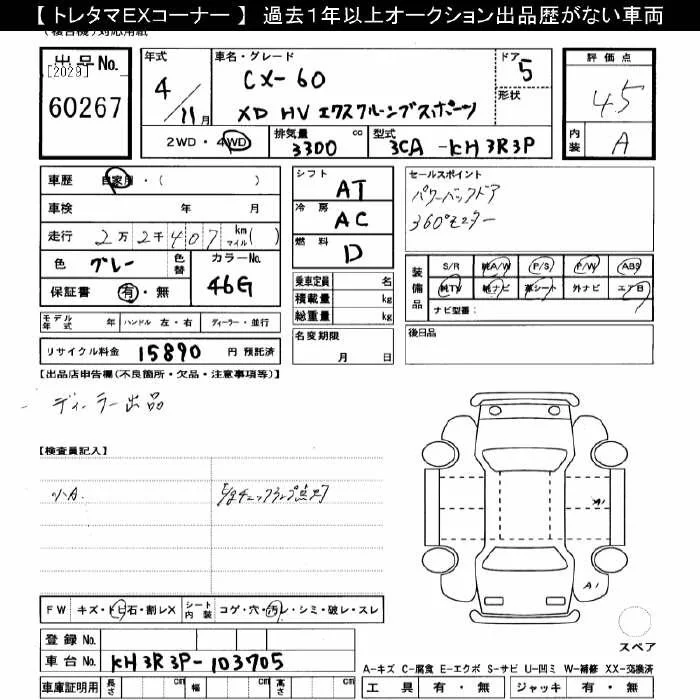 【 トレタマEXコーナー 】 過去1年以上オークション出品歴がない車両
(複合機)対応用紙
出品No.
[2029]
60267
年式
4/11月
車名・グレード
CX-60
XD HV エクスクルーシブスポーツ
ドア
5
形状
評価点
4.5
内装
A
2WD・4WD
排気量
3300 cc
型式
3CA-KH3R3P
車歴 自家用・( )
車検 年 月
走行 2万2千407 km マイル( )
色 グレー 色替 カラーNo. 46G
保証書 有・無
シフト AT
冷房 AC
燃料 D
セールスポイント
パワーバックドア
360°モニター
装備品
S/R 純A/W P/S P/W ABS
純TV 純ナビ 革シート 外ナビ エアB
ナビ型番:
乗車定員 名
積載量 kg
総重量 kg
モデル年式 年 ハンドル 左・右 ディーラー・並行
名変期限
月 日
後日品
リサイクル料金 15890 円 預託済
【出品店申告欄(不良箇所・欠品・注意事項等)】
ディーラー出品
【検査員記入】
小A.
A1
A1
FW キズ・トビ石・割レX シート内装 コゲ・穴・汚レ・シミ・破レ・スレ
登録No.
車台No. KH3R3P-103705
車庫証明用 長さ cm 幅 cm 高さ cm
スペア
A-キズ C-腐食 E-エクボ S-サビ U-凹ミ W-補修 XX-交換済
工具 有・無 ジャッキ 有・無